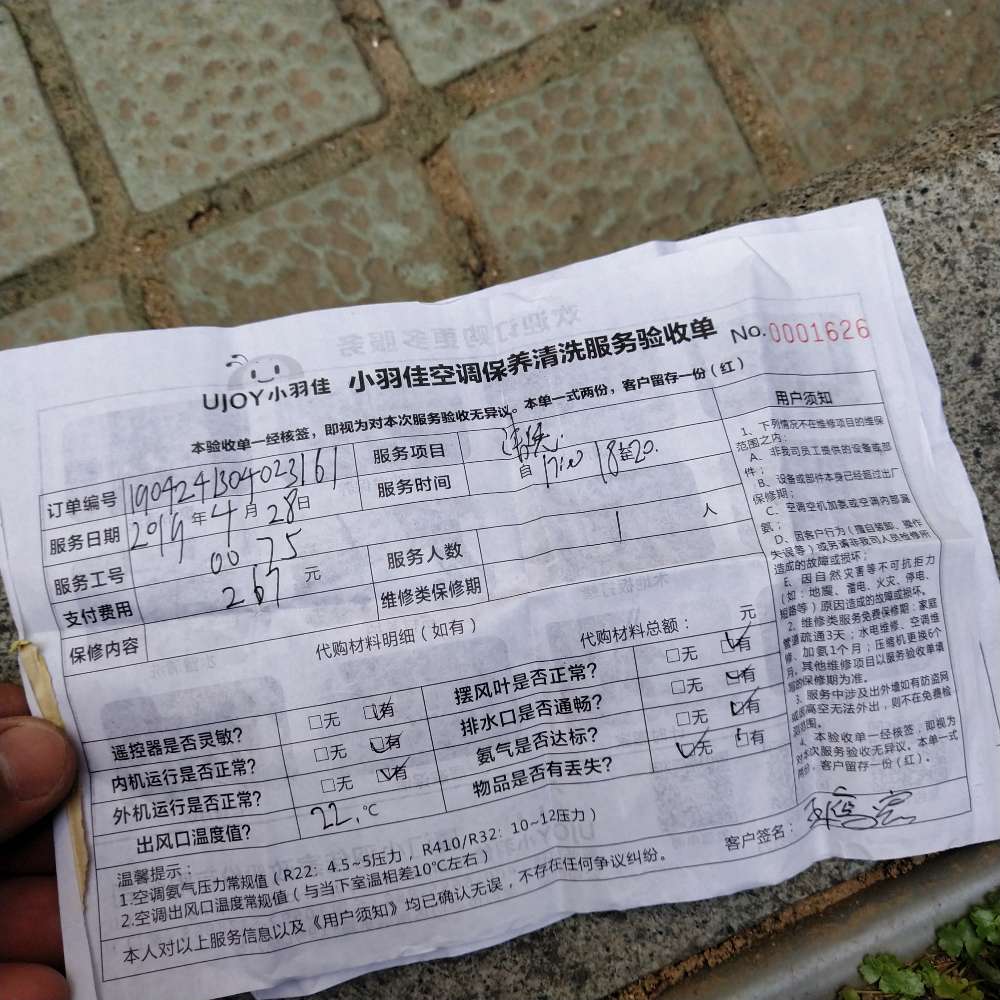 UJOY小羽佳 小羽佳空调保养清洗服务验收单 No.0001626
本验收单一经核签，即视为对本次服务验收无异议。本单一式两份，客户留存一份（红）
订单编号 1904241304023161 服务项目 清洗
服务日期 2019年4月28日 服务时间 自 至20
服务工号 0075 服务人数 1 人
支付费用 267 元 维修类保修期
保修内容 代购材料明细（如有） 代购材料总额： 元
遥控器是否灵敏？ □无 □有 摆风叶是否正常？ □无 □有
内机运行是否正常？ □无 □有 排水口是否通畅？ □无 □有
外机运行是否正常？ □无 □有 氨气是否达标？ □无 □有
出风口温度值？ 22.℃ 物品是否有丢失？ □无 □有
温馨提示：
1.空调氨气压力常规值（R22：4.5~5压力，R410/R32：10~12压力）
2.空调出风口温度常规值（与当下室温相差10℃左右）
本人对以上服务信息以及《用户须知》均已确认无误，不存在任何争议纠纷。
客户签名：
用户须知
1、下列情况不在维修项目的维保
范围之内：
A、非我司员工提供的设备或部
件；
B、设备或部件本身已经超过出厂
保修期；
C、空调空机加氨或空调内部漏
氨；
D、因客户行为（擅自装卸、操作
失误等）或另请非我司人员检修所
造成的故障或损坏；
E、因自然灾害等不可抗拒力
（如：地震、雷电、火灾、停电、
短路等）原因造成的故障或损坏。
2、维修类服务免费保修期：家庭
管道疏通3天；水电维修、空调维
修、加氨1个月；压缩机更换6个
月。其他维修项目以服务验收单填
写的保修期为准。
3、服务中涉及出外墙如有防盗网
或高空无法外出，则不在免费检
范围。
4、本验收单一经核签，即视为
对本次服务验收无异议。本单一式
两份，客户留存一份（红）。